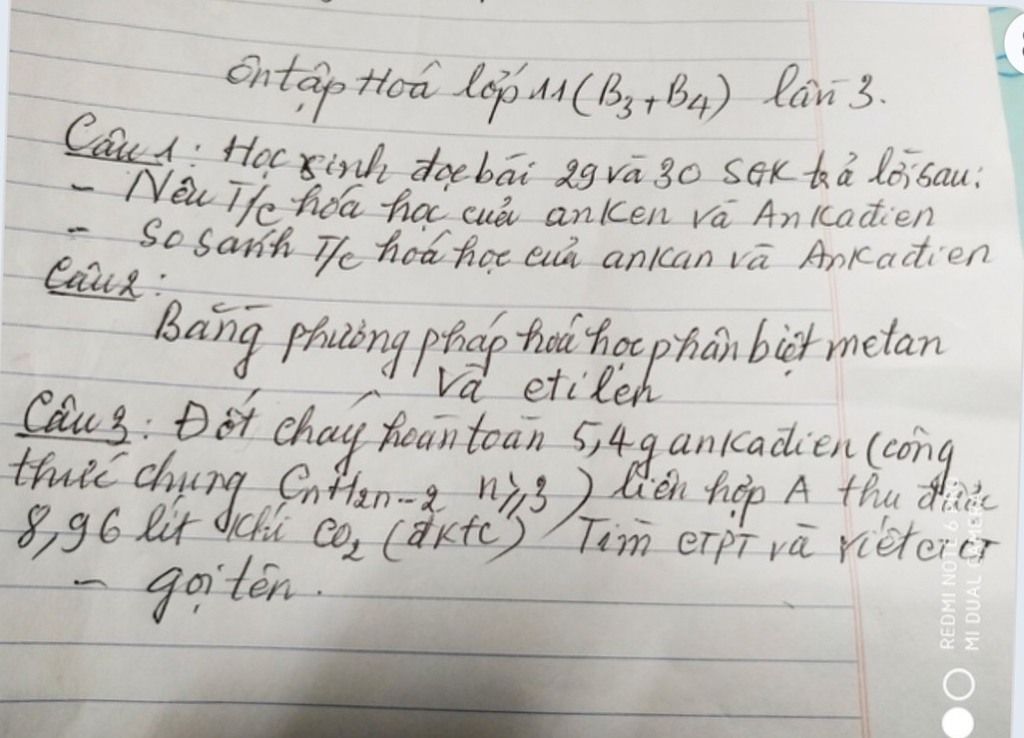 ôn tập Hoá lớp 11 (B3 + B4) lần 3.
Câu 1: Học sinh đọc bài 29 và 30 SGK trả lời sau:
- Nêu T/c hóa học của anken và Ankađien
- So sánh T/c hoá học của ankan và Ankađien
Câu 2:
Bằng phương pháp hoá học phân biệt metan
và etilen
Câu 3: Đốt cháy hoàn toàn 5,4g ankađien (công
thức chung CnH2n-2 n ≥ 3) liên hợp A thu được
8,96 lít khí CO2 (đktc) Tìm CTPT và viết CTCT
- gọi tên.
REDMI NOTE 6 PRO
MI DUAL CAMERA